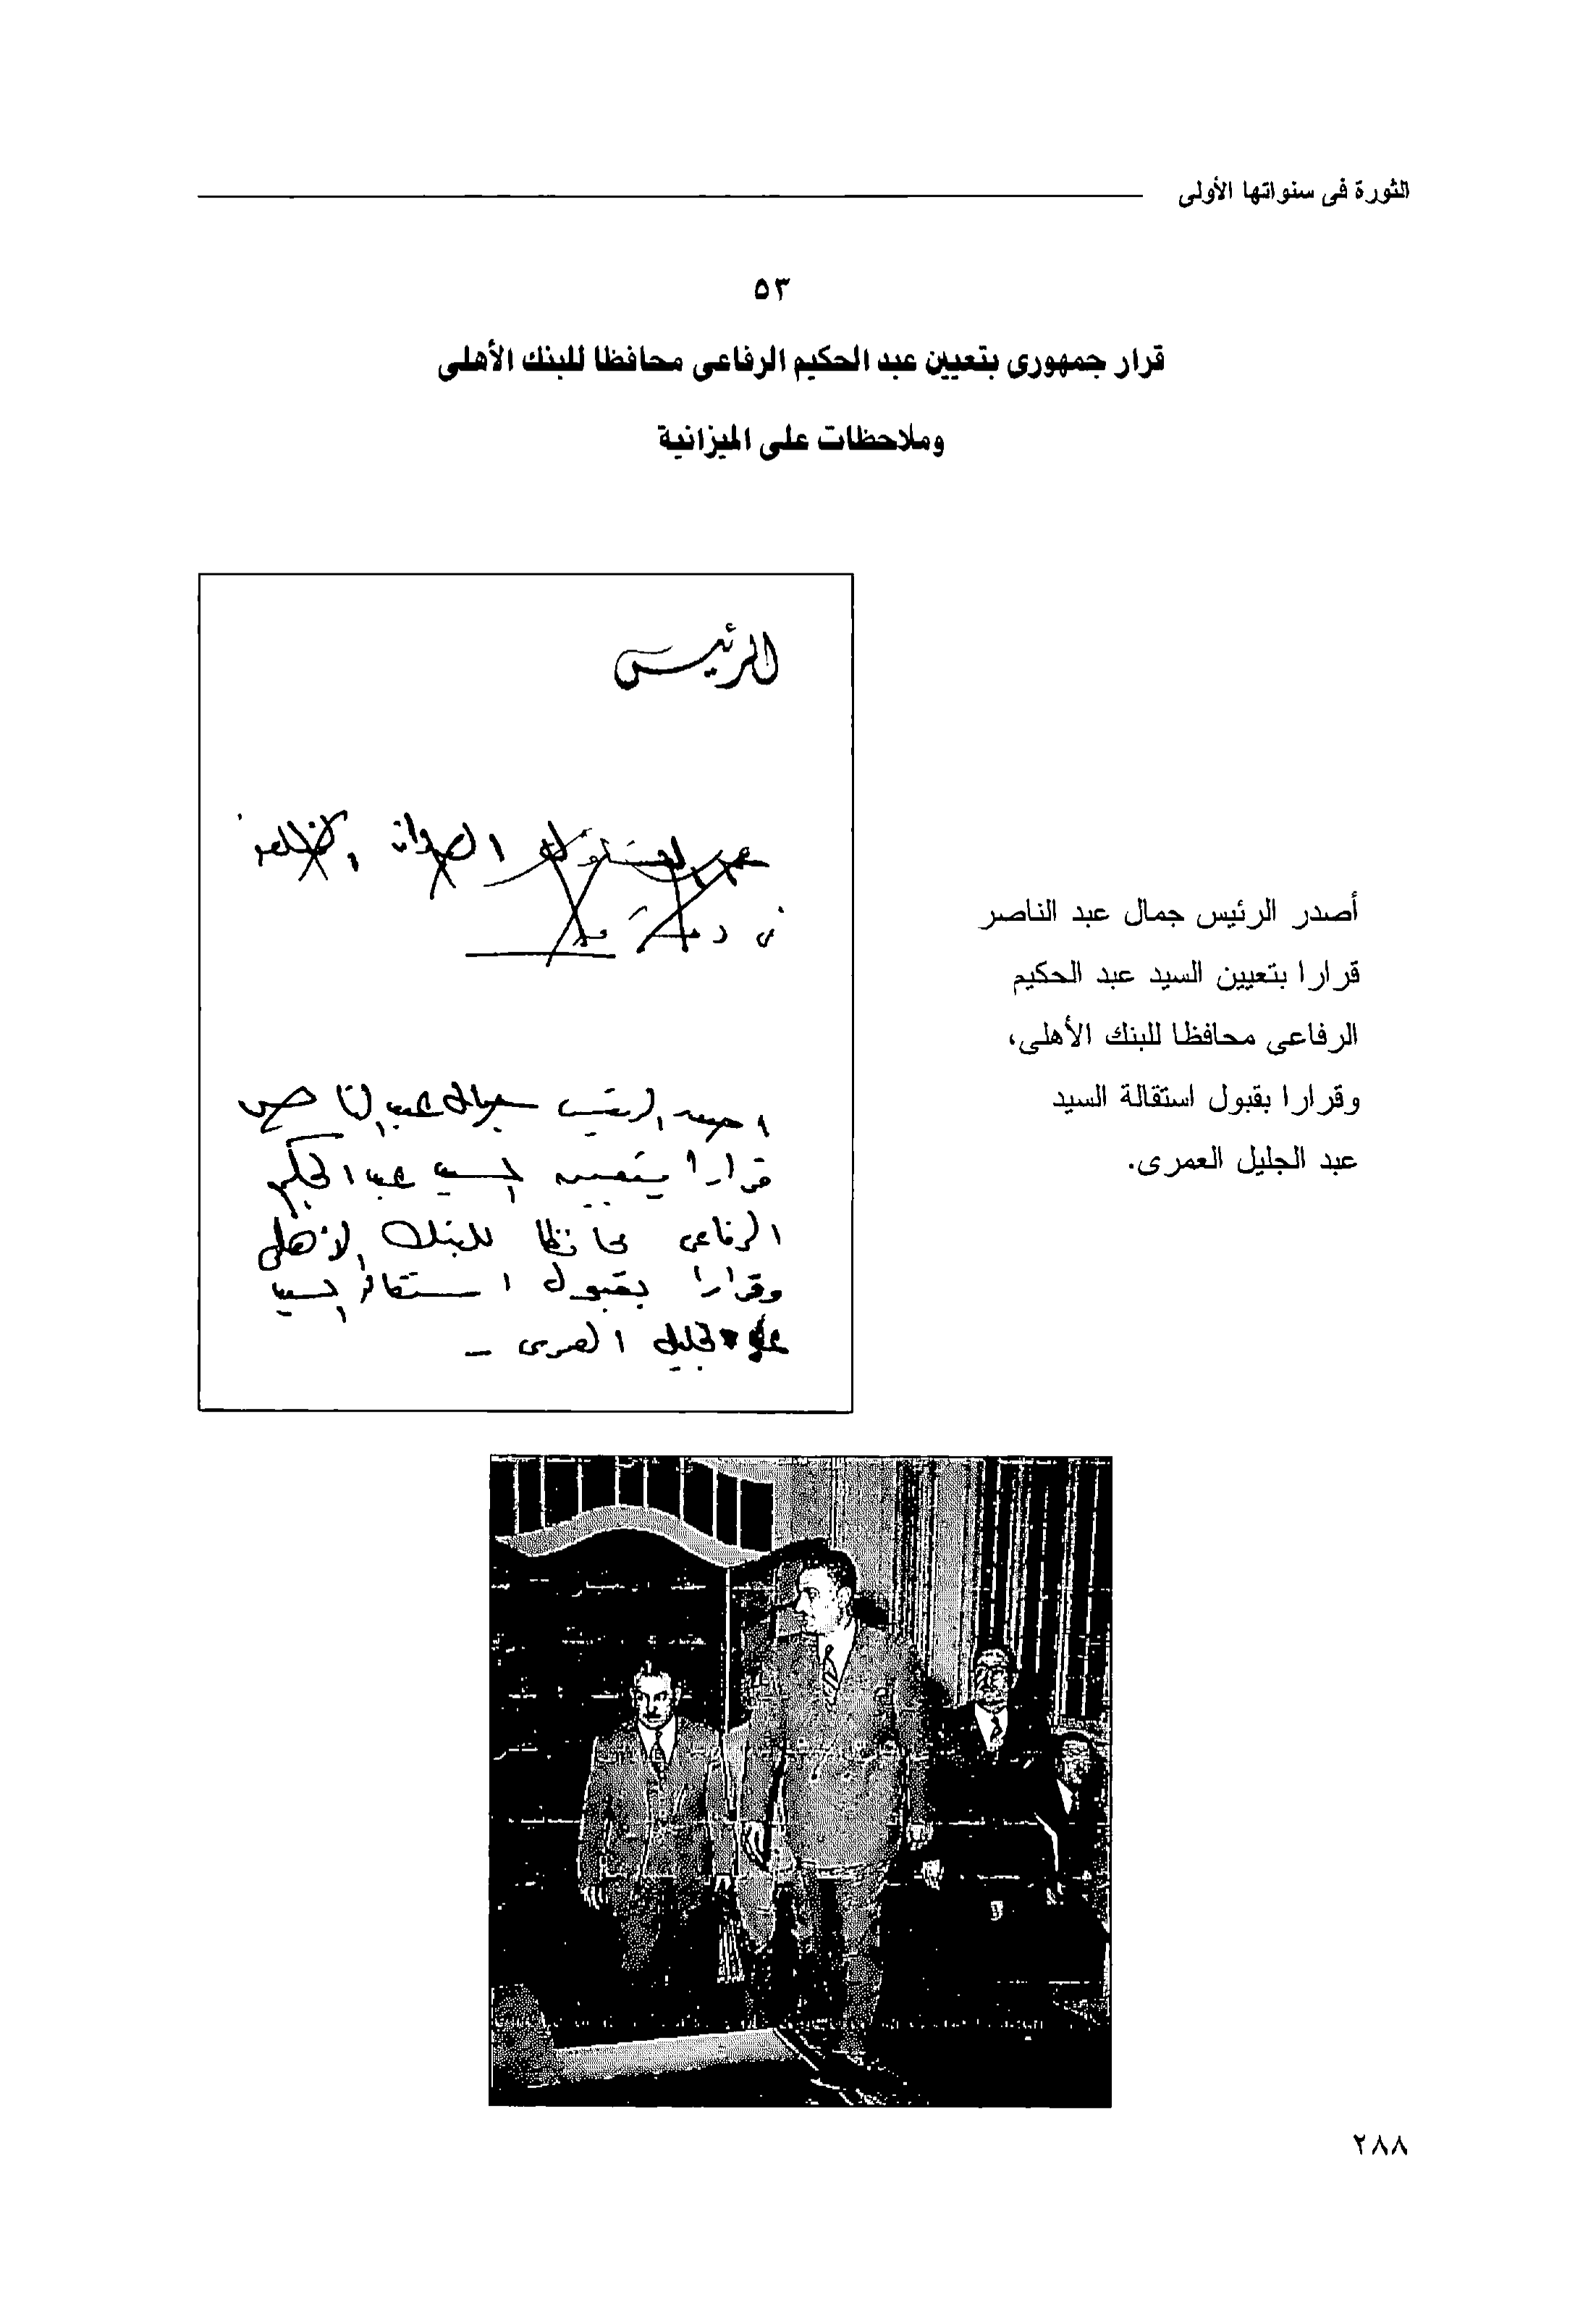 الثورة فى سنواتها الأولى
٥٣
قرار جمهورى بتعيين عبد الحكيم الرفاعى محافظا للبنك الأهلى
وملاحظات على الميزانية
أصدر الرئيس جمال عبد الناصر
قرارا بتعيين السيد عبد الحكيم
الرفاعى محافظا للبنك الأهلى،
وقرارا بقبول استقالة السيد
عبد الجليل العمرى.
الرئيس
اصدر الرئيس جمال عبد الناصر
قرارا بتعيين السيد عبد الحكيم
الرفاعى محافظا للبنك الأهلى
وقرارا بقبول استقالة السيد
عبد الجليل العمرى -
٢٨٨